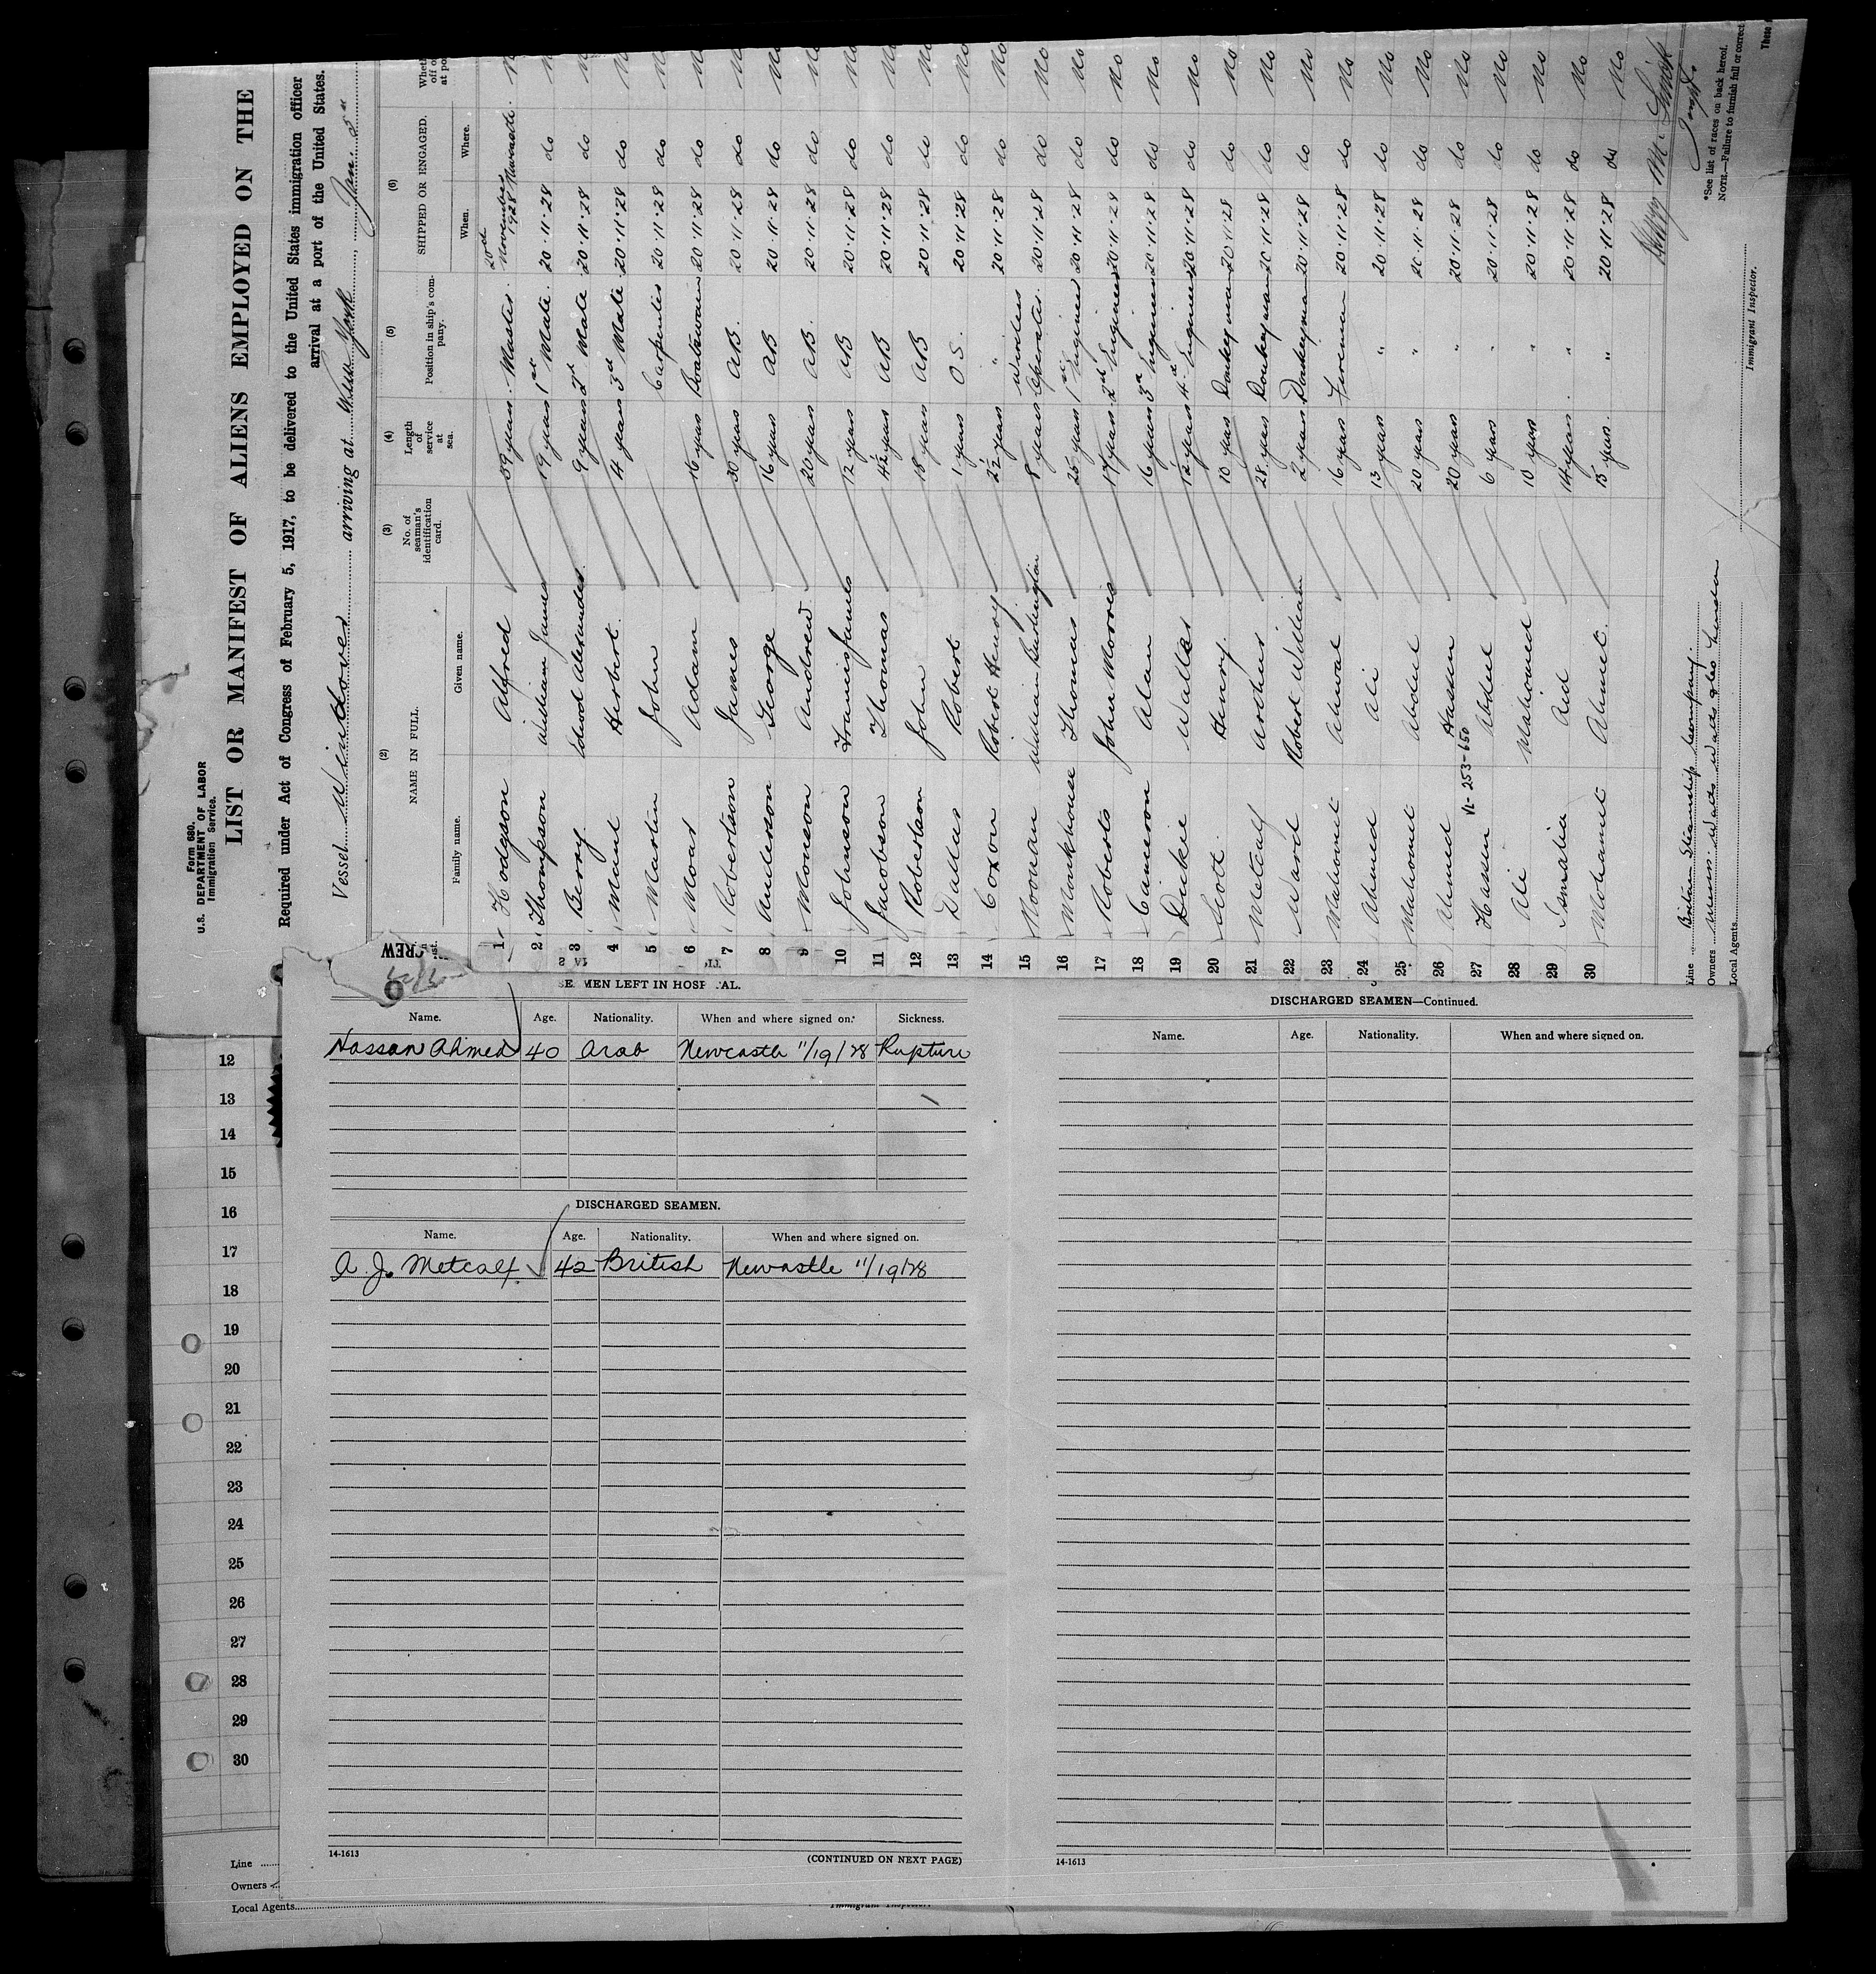 Form 680.
U.S. DEPARTMENT OF LABOR
Immigration Service.
LIST OR MANIFEST OF ALIENS EMPLOYED ON THE
Required under Act of Congress of February 5, 1917, to be delivered to the United States immigration officer
arrival at a port of the United States.
Vessel arriving at Jan. 5th
(2) (3) (4) (5) (6)
NAME IN FULL. No. of seaman's identification card. Length of service at sea. Position in ship's company. SHIPPED OR ENGAGED.
Family name. Given name. When. Where.
1 Hodgson Alfred 39 years Master 20th November 1928 Newcastle
2 Thompson William James 19 years 1st Mate 20.11.28 do
3 Berry 9 years 2nd Mate 20.11.28 do No
4 Herbert 14 years 3rd Mate 20.11.28 do No
5 Martin John Carpenter 20.11.28 do No
6 Moar Adam 16 years Boatswain 20.11.28 do No
7 Robertson James 30 years AB 20.11.28 do No
8 Anderson George 16 years AB 20.11.28 do No
9 Monson Andrew 20 years AB 20.11.28 do No
10 Johnson Francis James 12 years AB 20.11.28 do No
11 Jacobson Thomas 4½ years AB 20.11.28 do No
12 Robertson John 18 years AB 20.11.28 do No
13 Dallas Robert 1 years OS. 20.11.28 do No
14 Coxon Robert Henry 2½ years " 20.11.28 do No
15 Noonan William 8 years Wireless Operator 20.11.28 do No
16 Monkhouse Thomas 25 years 1st Engineer 20.11.28 do No
17 Roberts John Morris 17 years 2nd Engineer 20.11.28 do No
18 Cameron Alan 16 years 3rd Engineer 20.11.28 do No
19 Dickie Walter 12 years 4th Engineer 20.11.28 do No
20 Scott Henry 10 years Donkeyman 20.11.28 do No
21 Metcalf Arthur 28 years Donkeyman 20.11.28 do No
22 Ward Robert William 2 years Donkeyman 20.11.28 do No
23 Mahomet 16 years Firemen 20.11.28 do No
24 Ahmed Ali 13 years " 20.11.28 do No
25 Mahomet Abdul 20 years " 20.11.28 do No
26 Ahmed Hassen 20 years " 20.11.28 do No
27 Hassen Abdul 6 years " 20.11.28 do No
28 Ali Mahomed 10 years " 20.11.28 do No
29 Ismalia 14 years " 20.11.28 do No
30 Mohamet Ahmet 15 years " 20.11.28 do No
Line British Steamship Company.
Owners Messrs. Watts Watts & Co London
Local Agents
Immigrant Inspector.
*See list of races on back hereof.
NOTE.—Failure to furnish full or correct
CREW
SEAMEN LEFT IN HOSPITAL.
Name. Age. Nationality. When and where signed on. Sickness.
Hassan Ahmed 40 Arab Newcastle 11/19/28 Rupture
DISCHARGED SEAMEN.
Name. Age. Nationality. When and where signed on.
A. J. Metcalf. 42 British Newcastle 11/19/28
14-1613
(CONTINUED ON NEXT PAGE)
DISCHARGED SEAMEN—Continued.
Name. Age. Nationality. When and where signed on.
14-1613
12
13
14
15
16
17
18
19
20
21
22
23
24
25
26
27
28
29
30
Line
Owners
Local Agents
Immigrant Inspector.